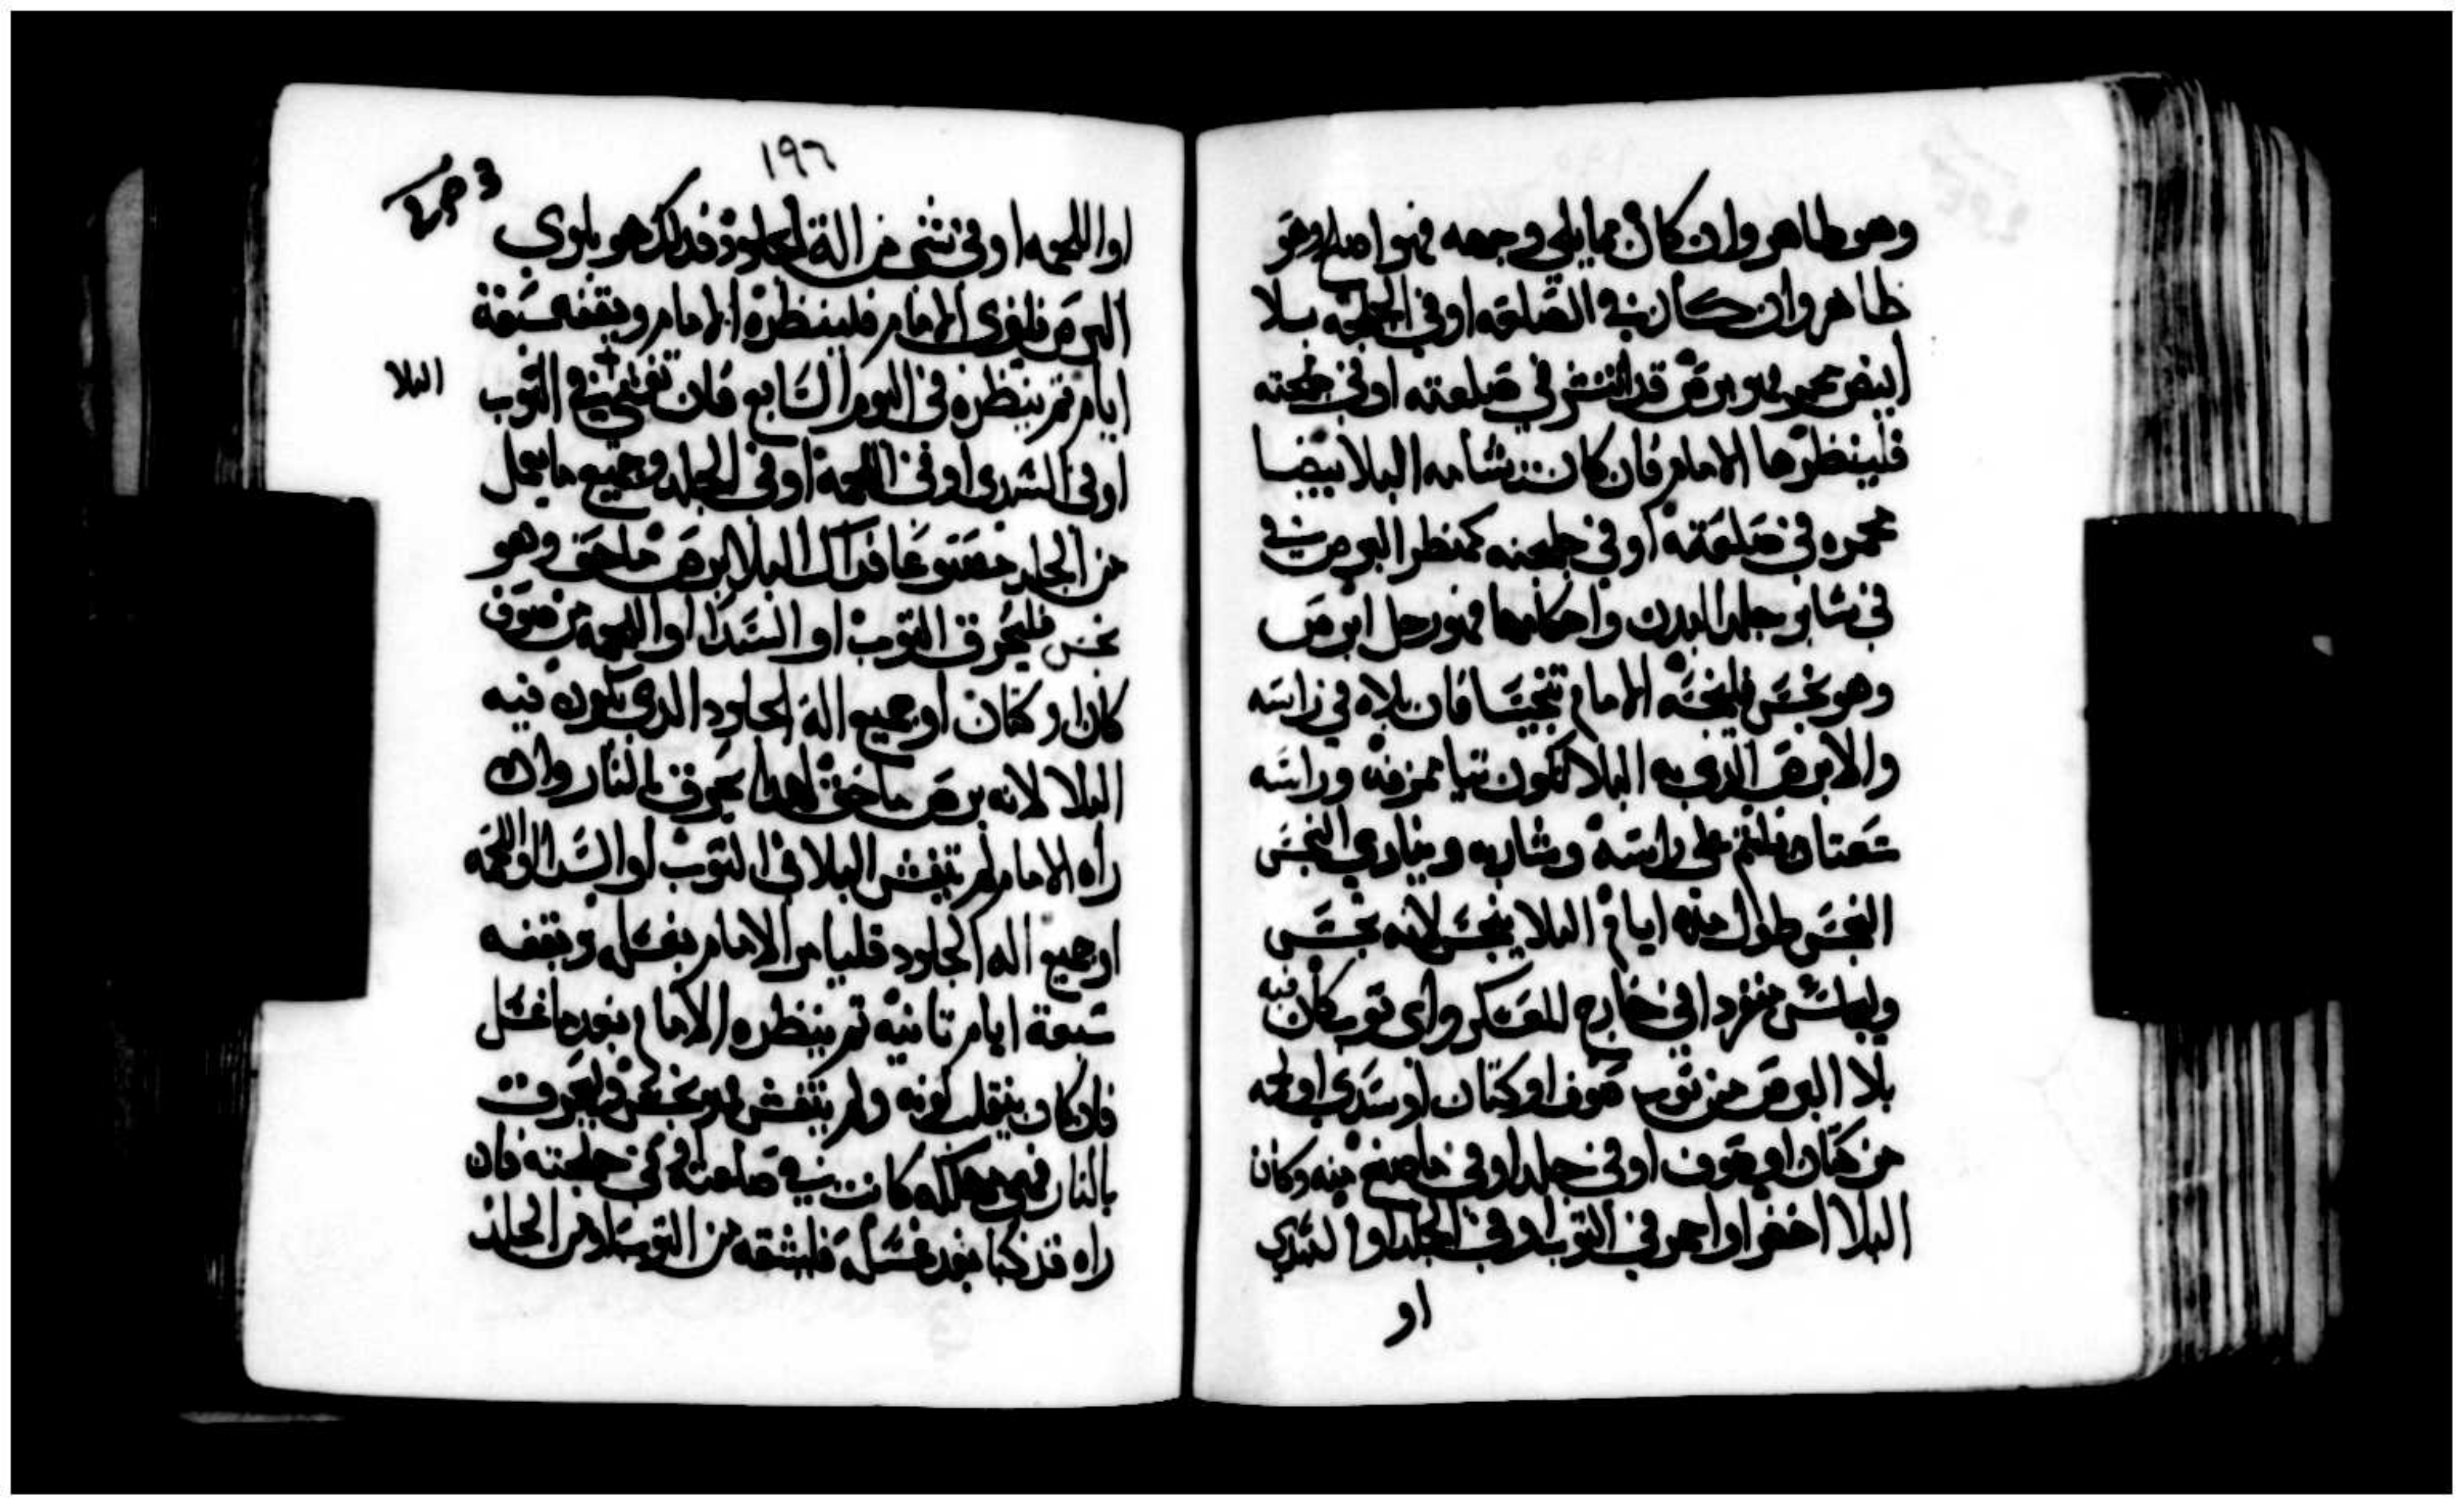 وهو طاهر وان كان مما يلي وجهه فهو اصلع وهو
طاهر وان كان في الصلعه او في الجلحه بلا
ابيض محمر فهو برص قد انتشر في صلعته او في جلحته
فلينظرها الامام فان كانت شامه البلا بيضا
محمره في صلعته او في جلحته كمنظر البرص في
في ساير جلد البدن واحكامها فهو رجل ابرص
وهو نجس فلينجسه الامام تنجيسا فان بلاه في راسه
والابرص الذي به البلا تكون تيابه ممزقه وراسه
شعتا وليلتم على راسه وشاربه وينادي النجس
النجس طول منه ايام البلا ينجس لانه نجس
وليجلس منفردا في خارج للعسكر واي توب كان فيه
بلا البرص من توب صوف او كتان او سدي او لحمه
من كتان او صوف او في جلد او في ما صنع منه وكان
البلا اخضر او احمر في التوب او في الجلد او السدي
او
١٩٦
او اللحمه او في شي من الة الجلود فدلك هو بلوي
البرص فليوري الامام فلينظره الامام ويقفه سبعة
ايام تم ينظره في اليوم السابع فان تفشي في التوب
البلا
او في السدي او في اللحمة او في الجلد وجميع ما يعمل
من الجلد مصنوعا فداك البلا برص ماحق وهو
نجس فليحرق التوب او السدا او اللحمه من صوف
كان او كتان او جميع الة الجلود الدي يكون فيه
البلا لانه برص ماحق لهدا يحرق بالنار وان
راه الامام لم يتفش البلا في التوب او السدا او اللحمه
او جميع اله الجلود فليامر الامام بغسله ويقفه
سبعة ايام تانيه تم ينظره الامام بعد ما غسل
فان كان ينقلب لونه ولم يتفش فهو نجس وليحرق
بالنار فهي مهلكه كانت في صلعته او في جلحته فان
راه قد كبا بعد غسله فليشقه من التوب او من الجلد